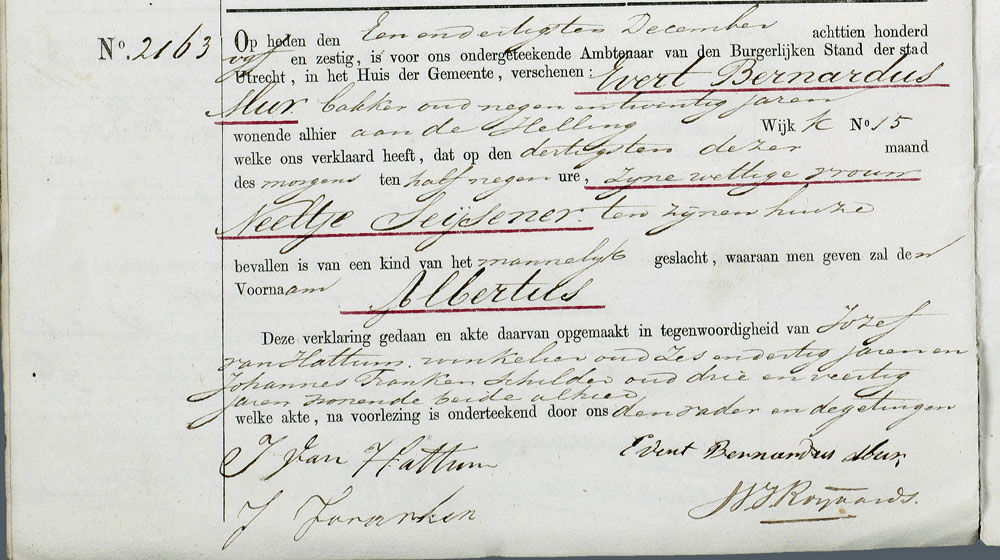 No. 2163
Op heden den Een en dertigsten December achttien honderd
vyf en zestig, is voor ons ondergeteekende Ambtenaar van den Burgerlijken Stand der stad
Utrecht, in het Huis der Gemeente, verschenen: Evert Bernardus
Mur bakker oud negen en twintig jaren
wonende alhier aan de Helling Wijk K No 15
welke ons verklaard heeft, dat op den dertigsten dezer maand
des morgens ten half negen ure, zyne wettige vrouw
Neeltje Seijsener. ten zijnen huize
bevallen is van een kind van het mannelyk geslacht, waaraan men geven zal den
Voornaam Albertus
Deze verklaring gedaan en akte daarvan opgemaakt in tegenwoordigheid van Jozef
van Hattum. winkelier oud zes en dertig jaren en
Johannes Franken schilder oud drie en veertig
jaren wonende beide alhier
welke akte, na voorlezing is onderteekend door ons den vader en de getuigen
J van Hattum Evert Bernardus Mur.
J Franken